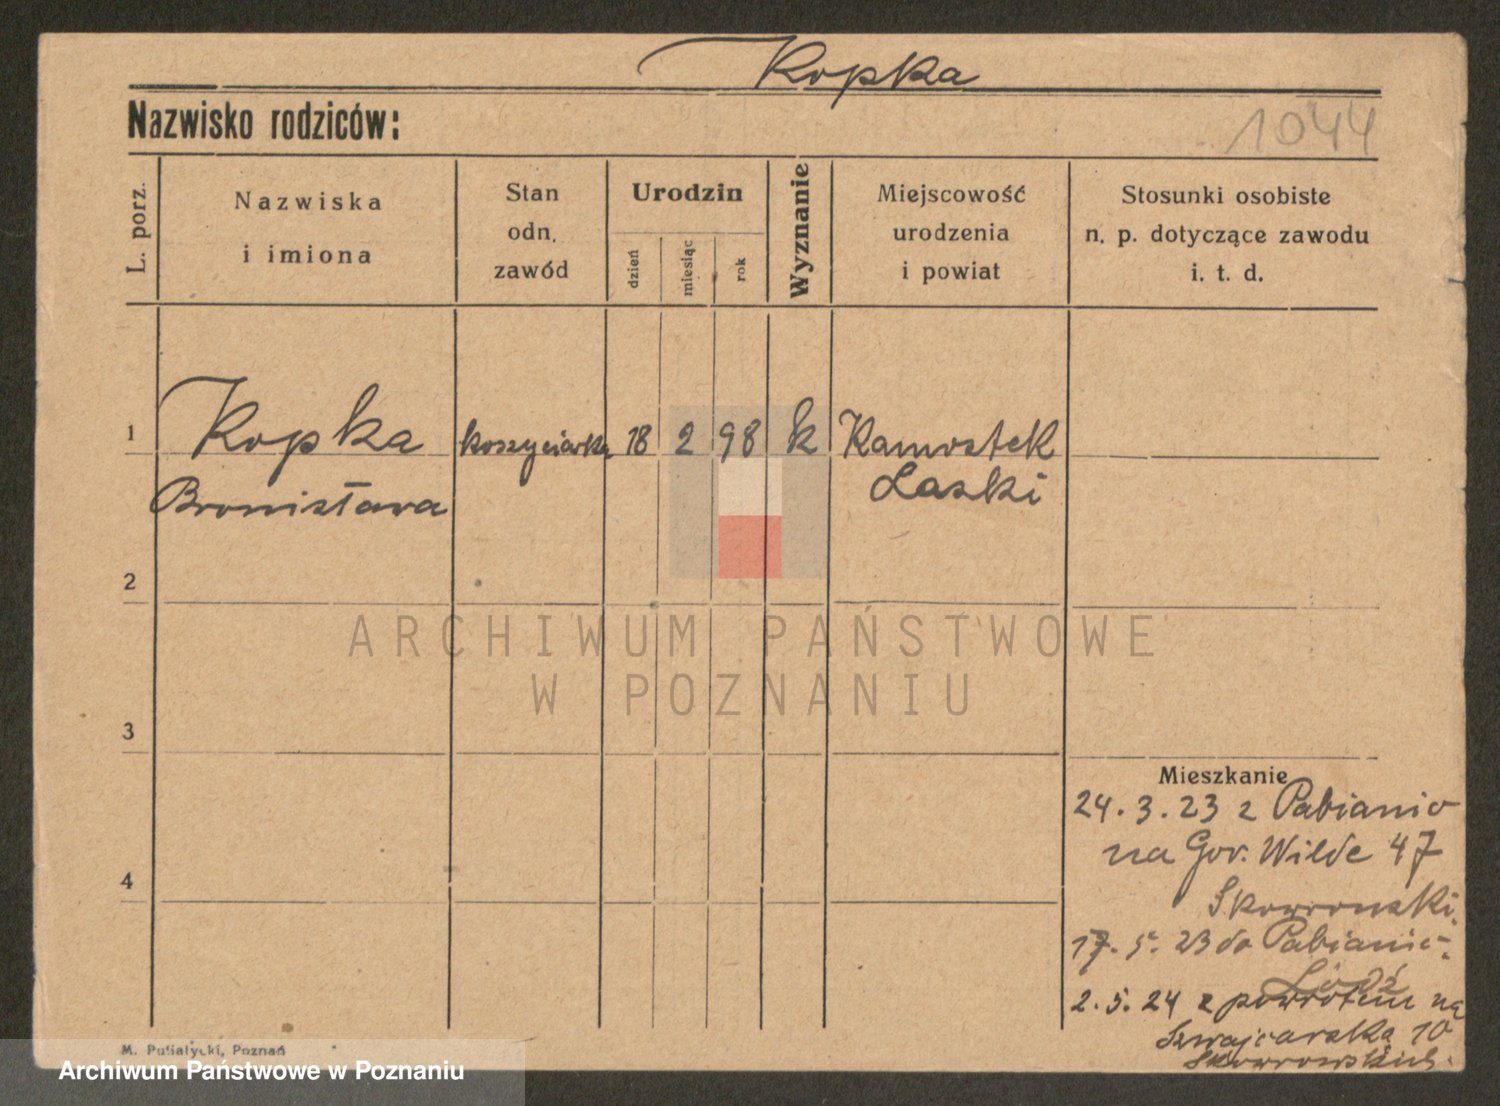 Kopka
Nazwisko rodziców:
1044
L. porz.
Nazwiska
i imiona
Stan
odn.
zawód
Urodzin
dzień
miesiąc
rok
Wyznanie
Miejscowość
urodzenia
i powiat
Stosunki osobiste
n. p. dotyczące zawodu
i. t. d.
1
Kopka
Bronisława
18
2
98
k
Kamostek
Laski
2
3
4
ARCHIWUM PAŃSTWOWE
W POZNANIU
Mieszkanie
24.3.23 z Pabianic
na Gór. Wilde 47
Skowronski.
17.5.23 do Pabianic
Łódź
2.5.24 z powrotem na
Szwajcarska 10
M. Putiatycki, Poznań
Archiwum Państwowe w Poznaniu